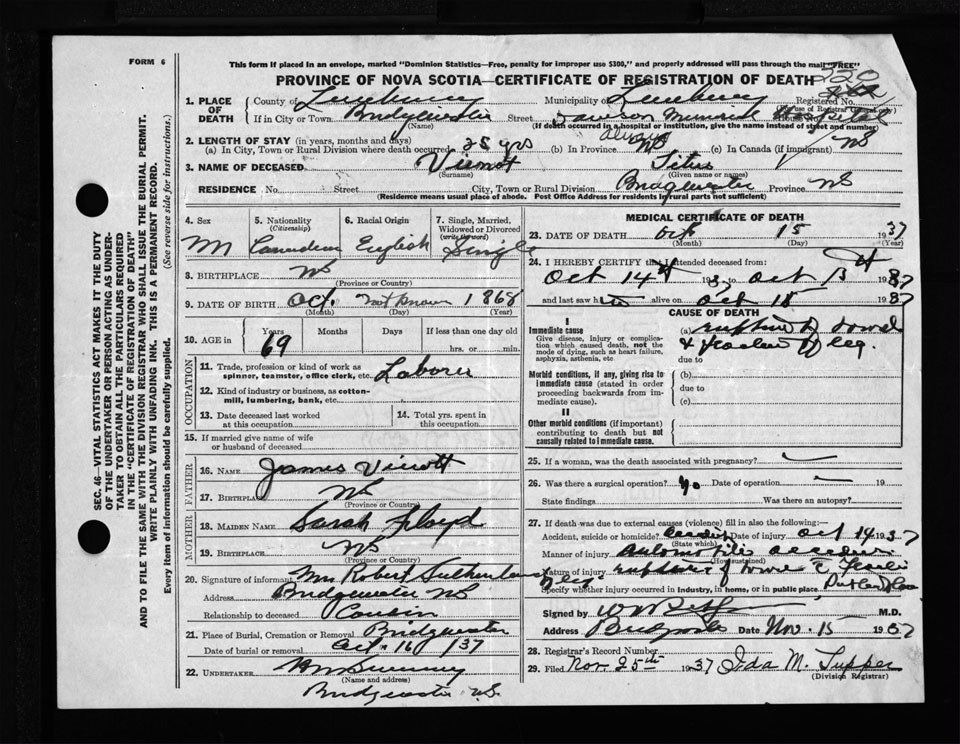 FORM 6
This form if placed in an envelope, marked "Dominion Statistics—Free, penalty for improper use $300," and properly addressed will pass through the mail "FREE"
PROVINCE OF NOVA SCOTIA—CERTIFICATE OF REGISTRATION OF DEATH
220
1. PLACE OF DEATH
County of Lunenburg Municipality of Lunenburg Registered No.
(For use of Registrar General only)
If in City or Town Bridgewater Street Dawson Memorial Hospital
(Name) (If death occurred in a hospital or institution, give the name instead of street and number)
2. LENGTH OF STAY (in years, months and days)
(a) In City, Town or Rural Division where death occurred 25 yrs (b) In Province always NS (c) In Canada (if immigrant) NS
3. NAME OF DECEASED Vienot Titus
(Surname) (Given name or names)
RESIDENCE No. Street City, Town or Rural Division Bridgewater Province NS
(Residence means usual place of abode. Post Office Address for residents in rural parts not sufficient)
4. Sex M
5. Nationality (Citizenship) Canadian
6. Racial Origin English
7. Single, Married, Widowed or Divorced (write the word) Single
8. BIRTHPLACE NS
(Province or County)
9. DATE OF BIRTH Oct. not known 1868
(Month) (Day) (Year)
10. AGE in Years Months Days If less than one day old
69 hrs. or min.
OCCUPATION
11. Trade, profession or kind of work as spinner, teamster, office clerk, etc. Laborer
12. Kind of industry or business, as cotton-mill, lumbering, bank, etc.
13. Date deceased last worked at this occupation
14. Total yrs. spent in this occupation.
15. If married give name of wife or husband of deceased
FATHER
16. NAME James Vinott
17. BIRTHPLACE NS
(Province or County)
MOTHER
18. MAIDEN NAME Sarah Floyd
19. BIRTHPLACE NS
(Province or County)
20. Signature of informant Mrs Robert
Address Bridgewater NS
Relationship to deceased Cousin
21. Place of Burial, Cremation or Removal Bridgewater
Date of burial or removal Oct. 16 /37
22. UNDERTAKER
(Name and address)
Bridgewater N.S.
MEDICAL CERTIFICATE OF DEATH
23. DATE OF DEATH Oct 15 1937
(Month) (Day) (Year)
24. I HEREBY CERTIFY that I attended deceased from:
Oct 14th 193 to Oct 15th 1937
and last saw h alive on Oct 15 1937
CAUSE OF DEATH
I
Immediate cause
Give disease, injury or complication which caused death, not the mode of dying, such as heart failure, asphyxia, asthenia, etc
(a) rupture of bowel
& fracture of leg.
due to
Morbid conditions, if any, giving rise to immediate cause (stated in order proceeding backwards from immediate cause).
(b)
due to
(c)
II
Other morbid conditions (if important) contributing to death but not causally related to immediate cause.
25. If a woman, was the death associated with pregnancy?
26. Was there a surgical operation? No Date of operation 19
State findings Was there an autopsy?
27. If death was due to external causes (violence) fill in also the following:—
Accident, suicide or homicide? accident Date of injury Oct 14 1937
(State which)
Manner of injury automobile accident
(How sustained)
Nature of injury rupture of bowel
leg
Specify whether injury occurred in Industry, in home, or in public place
Signed by M.D.
Address Date Nov. 15 1937
28. Registrar's Record Number
29. Filed Nov. 25th 1937 Ida M. Tupper
(Division Registrar)
SEC. 46—VITAL STATISTICS ACT MAKES IT THE DUTY OF THE UNDERTAKER OR PERSON ACTING AS UNDERTAKER TO OBTAIN ALL THE PARTICULARS REQUIRED IN THE "CERTIFICATE OF REGISTRATION OF DEATH" AND TO FILE THE SAME WITH THE DIVISION REGISTRAR WHO SHALL ISSUE THE BURIAL PERMIT.
WRITE PLAINLY WITH UNFADING INK. THIS IS A PERMANENT RECORD.
Every item of information should be carefully supplied. (See reverse side for instructions.)